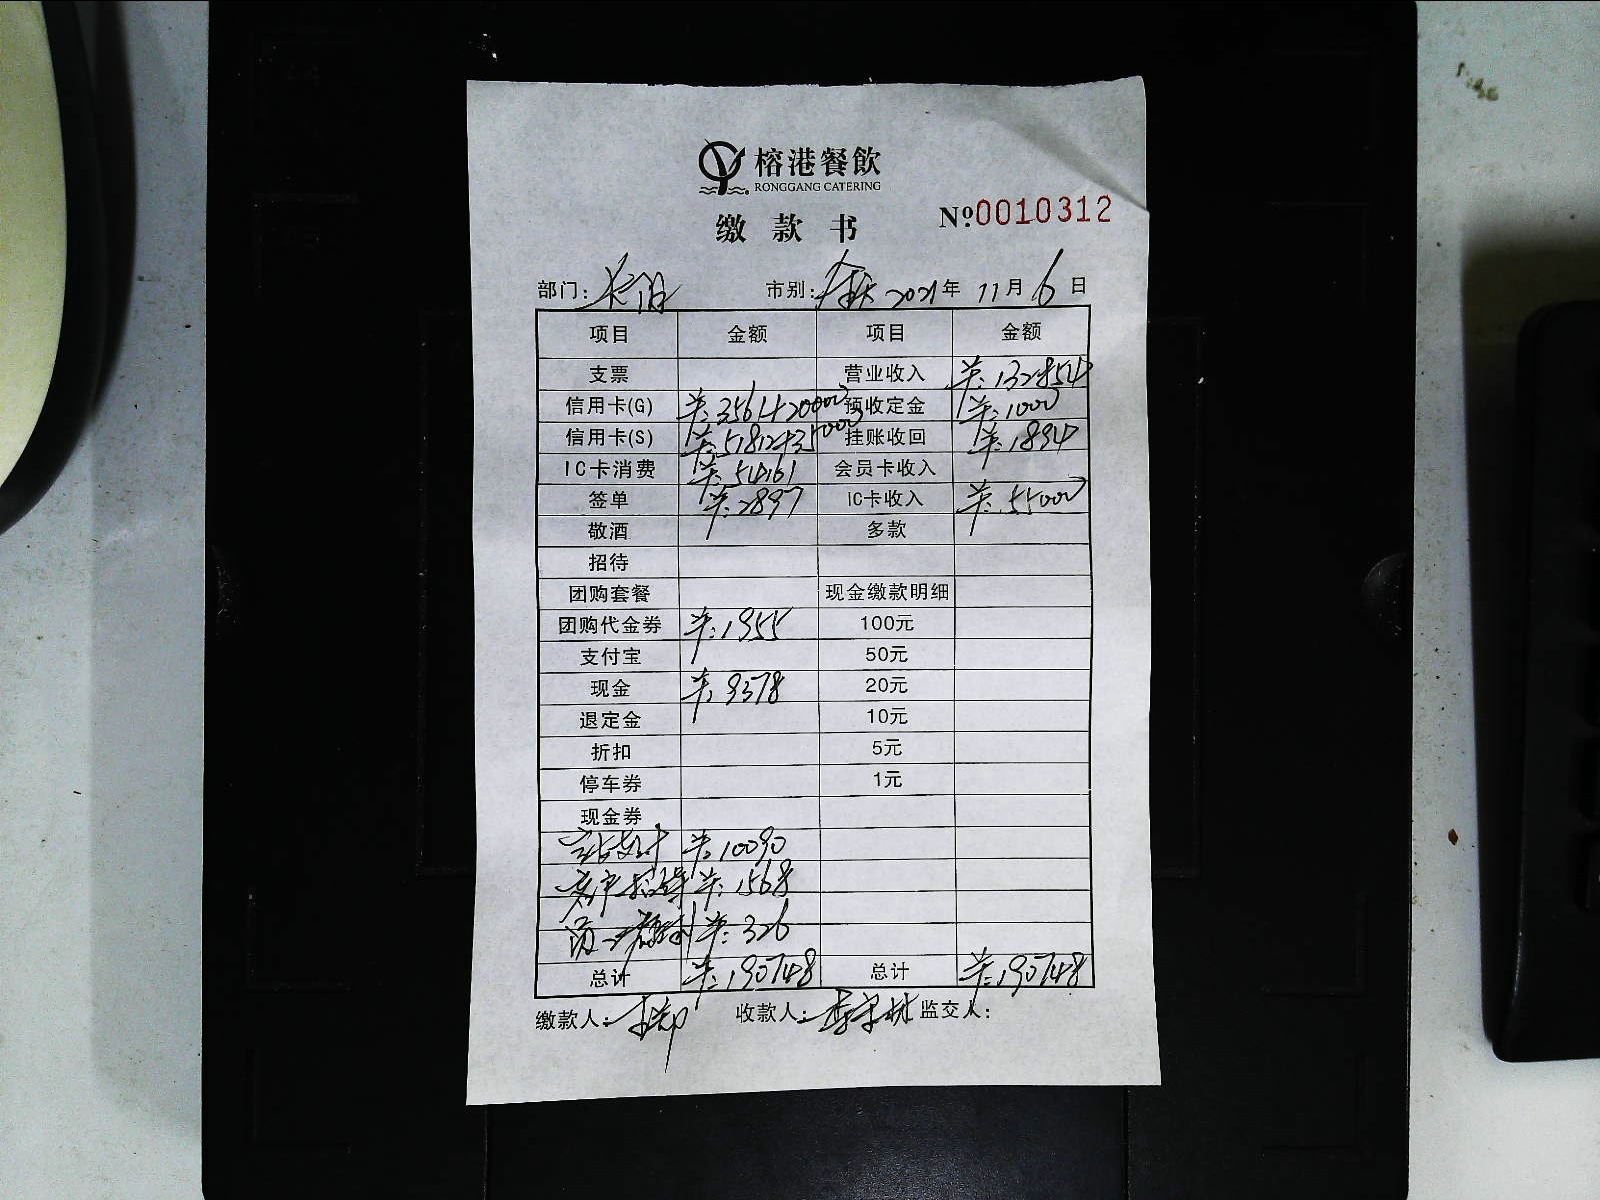 榕港餐飲
RONGGANG CATERING
缴款书 №0010312
部门: 市别: 2021年 11月 6日
项目 金额 项目 金额
支票 营业收入 羊:132854
信用卡(G) 羊:3561+20000 预收定金 羊:1000
信用卡(S) 羊:51812+35000 挂账收回 羊:1894
IC卡消费 羊:54161 会员卡收入
签单 羊:2897 IC卡收入 羊:55000
敬酒 多款
招待
团购套餐 现金缴款明细
团购代金券 羊:1955 100元
支付宝 50元
现金 羊:9378 20元
退定金 10元
折扣 5元
停车券 1元
现金券
羊:10090
羊:1568
羊:326
总计 羊:190748 总计 羊:190748
缴款人: 收款人: 监交人: